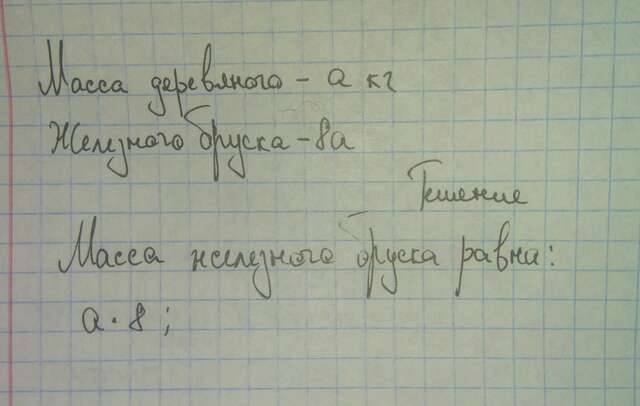 Масса деревяного - а кг
Железного бруска - 8а
Решение
Масса железного бруска равна:
а · 8 ;